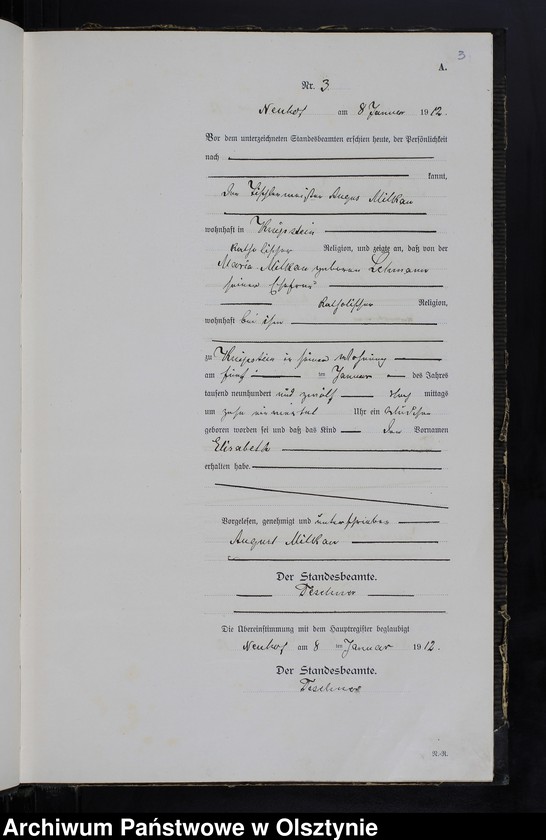 3
A.
Nr. 3
Neuhof am 8 Januar 1912.
Vor dem unterzeichneten Standesbeamten erschien heute, der Persönlichkeit
nach
kannt,
der Tischlermeister August Milkau
wohnhaft in
katholischer Religion, und zeigte an, daß von der
Maria Milkau geborenen Lehmann
seiner Ehefrau
katholischer Religion,
wohnhaft bei ihm
zu in seiner Wohnung
am fünf ten Januar des Jahres
tausend neunhundert und zwölf mittags
um zehn einviertel Uhr ein Mädchen
geboren worden sei und daß das Kind den Vornamen
Elisabeth
erhalten habe.
Vorgelesen, genehmigt und unterschrieben
August Milkau
Der Standesbeamte.
Teschner
Die Übereinstimmung mit dem Hauptregister beglaubigt
Neuhof am 8 ten Januar 1912.
Der Standesbeamte.
Teschner
N.-R.
Archiwum Państwowe w Olsztynie